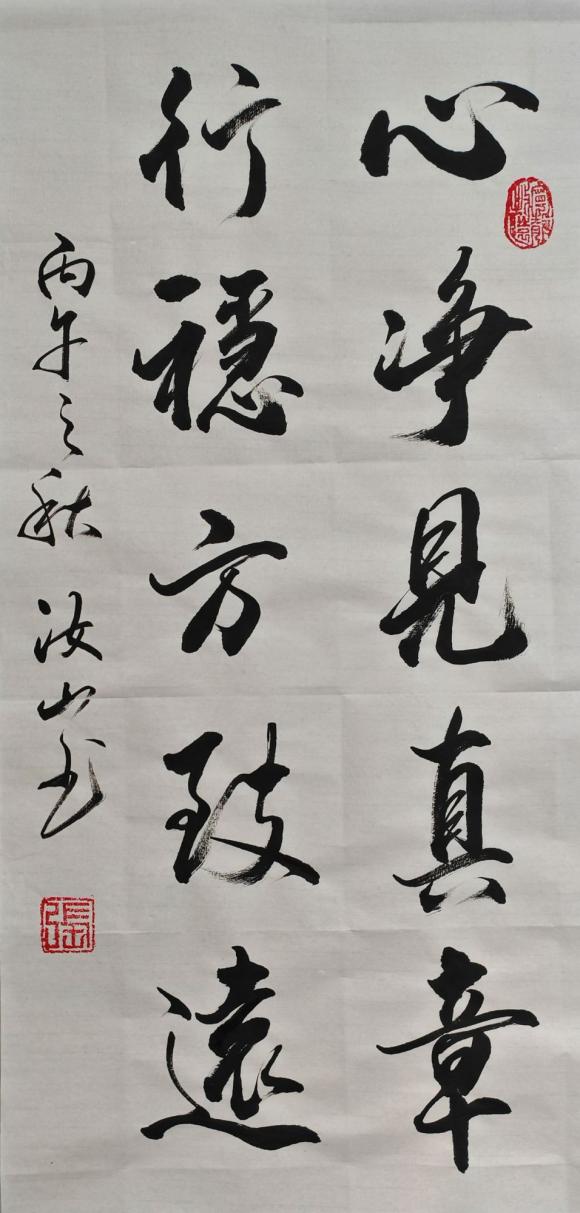 心净見真章
行穩方致遠
丙午之秋 汝山书
張